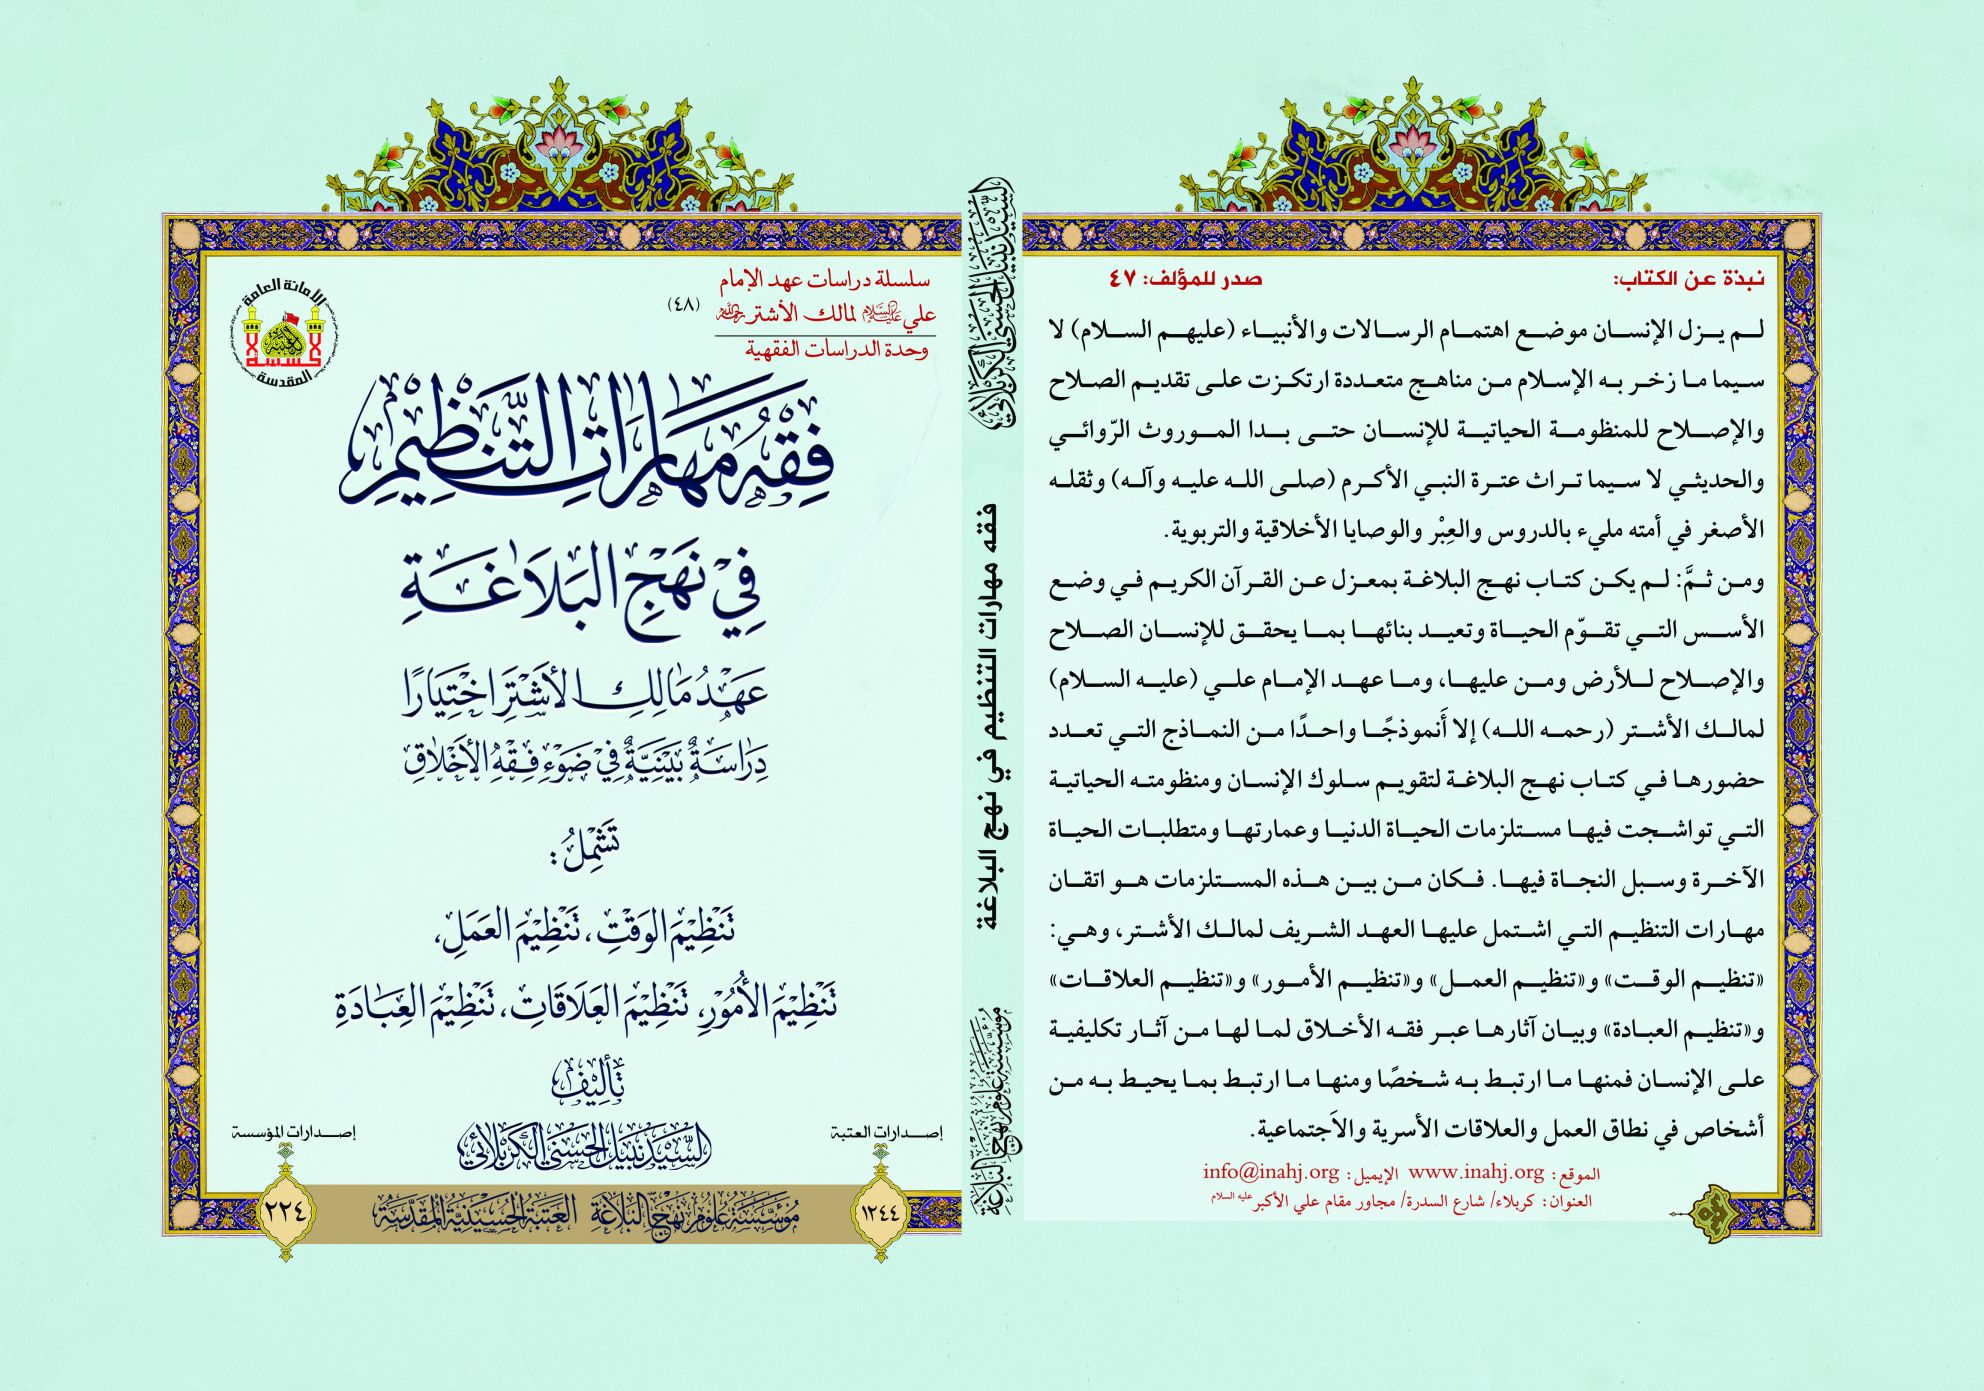 سلسلة دراسات عهد الإمام
علي عليه السلام لمالك الأشتر رحمه الله (٤٨)
وحدة الدراسات الفقهية
الأمانة العامة
المقدسة
فِقْهُ مَهَارَاتِ التَّنْظِيْمِ
فِيْ نَهْجِ البَلَاغَةِ
عَهْدُ مَالِكِ الأَشْتَرِ اخْتِيَارًا
دِرَاسَةٌ بَيْنِيَّةٌ فِيْ ضَوْءِ فِقْهِ الأَخْلَاقِ
تَشْمِلُ:
تَنْظِيْمَ الوَقْتِ، تَنْظِيْمَ العَمَلِ،
تَنْظِيْمَ الأُمُوْرِ، تَنْظِيْمَ العَلَاقَاتِ، تَنْظِيْمَ العِبَادَةِ
تَأليف
السيد نبيل الحسني الكربلائي
إصدارات العتبة
١٢٤٤
إصدارات المؤسسة
٢٢٤
مؤسسة علوم نهج البلاغة العتبة الحسينية المقدسة
السيد نبيل الحسني الكربلائي
فقه مهارات التنظيم في نهج البلاغة
مؤسسة علوم نهج البلاغة
نبذة عن الكتاب: صدر للمؤلف: ٤٧
لم يزل الإنسان موضع اهتمام الرسالات والأنبياء (عليهم السلام) لا
سيما ما زخر به الإسلام من مناهج متعددة ارتكزت على تقديم الصلاح
والإصلاح للمنظومة الحياتية للإنسان حتى بدا الموروث الرّوائي
والحديثي لا سيما تراث عترة النبي الأكرم (صلى الله عليه وآله) وثقله
الأصغر في أمته مليء بالدروس والعِبْر والوصايا الأخلاقية والتربوية.
ومن ثمَّ: لم يكن كتاب نهج البلاغة بمعزل عن القرآن الكريم في وضع
الأسس التي تقوّم الحياة وتعيد بنائها بما يحقق للإنسان الصلاح
والإصلاح للأرض ومن عليها، وما عهد الإمام علي (عليه السلام)
لمالك الأشتر (رحمه الله) إلا أَنموذجًا واحدًا من النماذج التي تعدد
حضورها في كتاب نهج البلاغة لتقويم سلوك الإنسان ومنظومته الحياتية
التي تواشجت فيها مستلزمات الحياة الدنيا وعمارتها ومتطلبات الحياة
الآخرة وسبل النجاة فيها. فكان من بين هذه المستلزمات هو اتقان
مهارات التنظيم التي اشتمل عليها العهد الشريف لمالك الأشتر، وهي:
«تنظيم الوقت» و«تنظيم العمل» و«تنظيم الأمور» و«تنظيم العلاقات»
و«تنظيم العبادة» وبيان آثارها عبر فقه الأخلاق لما لها من آثار تكليفية
على الإنسان فمنها ما ارتبط به شخصًا ومنها ما ارتبط بما يحيط به من
أشخاص في نطاق العمل والعلاقات الأسرية والاَجتماعية.
الموقع: www.inahj.org الإيميل: info@inahj.org
العنوان: كربلاء/ شارع السدرة/ مجاور مقام علي الأكبر عليه السلام